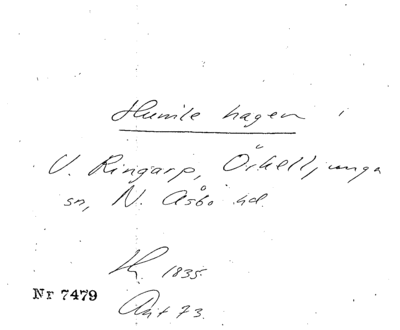 Humlehagen i
V. Ringarp, Örkelljunga
sn, N. Åsbo hd.
1835.
Nr 7479
Akt 73.